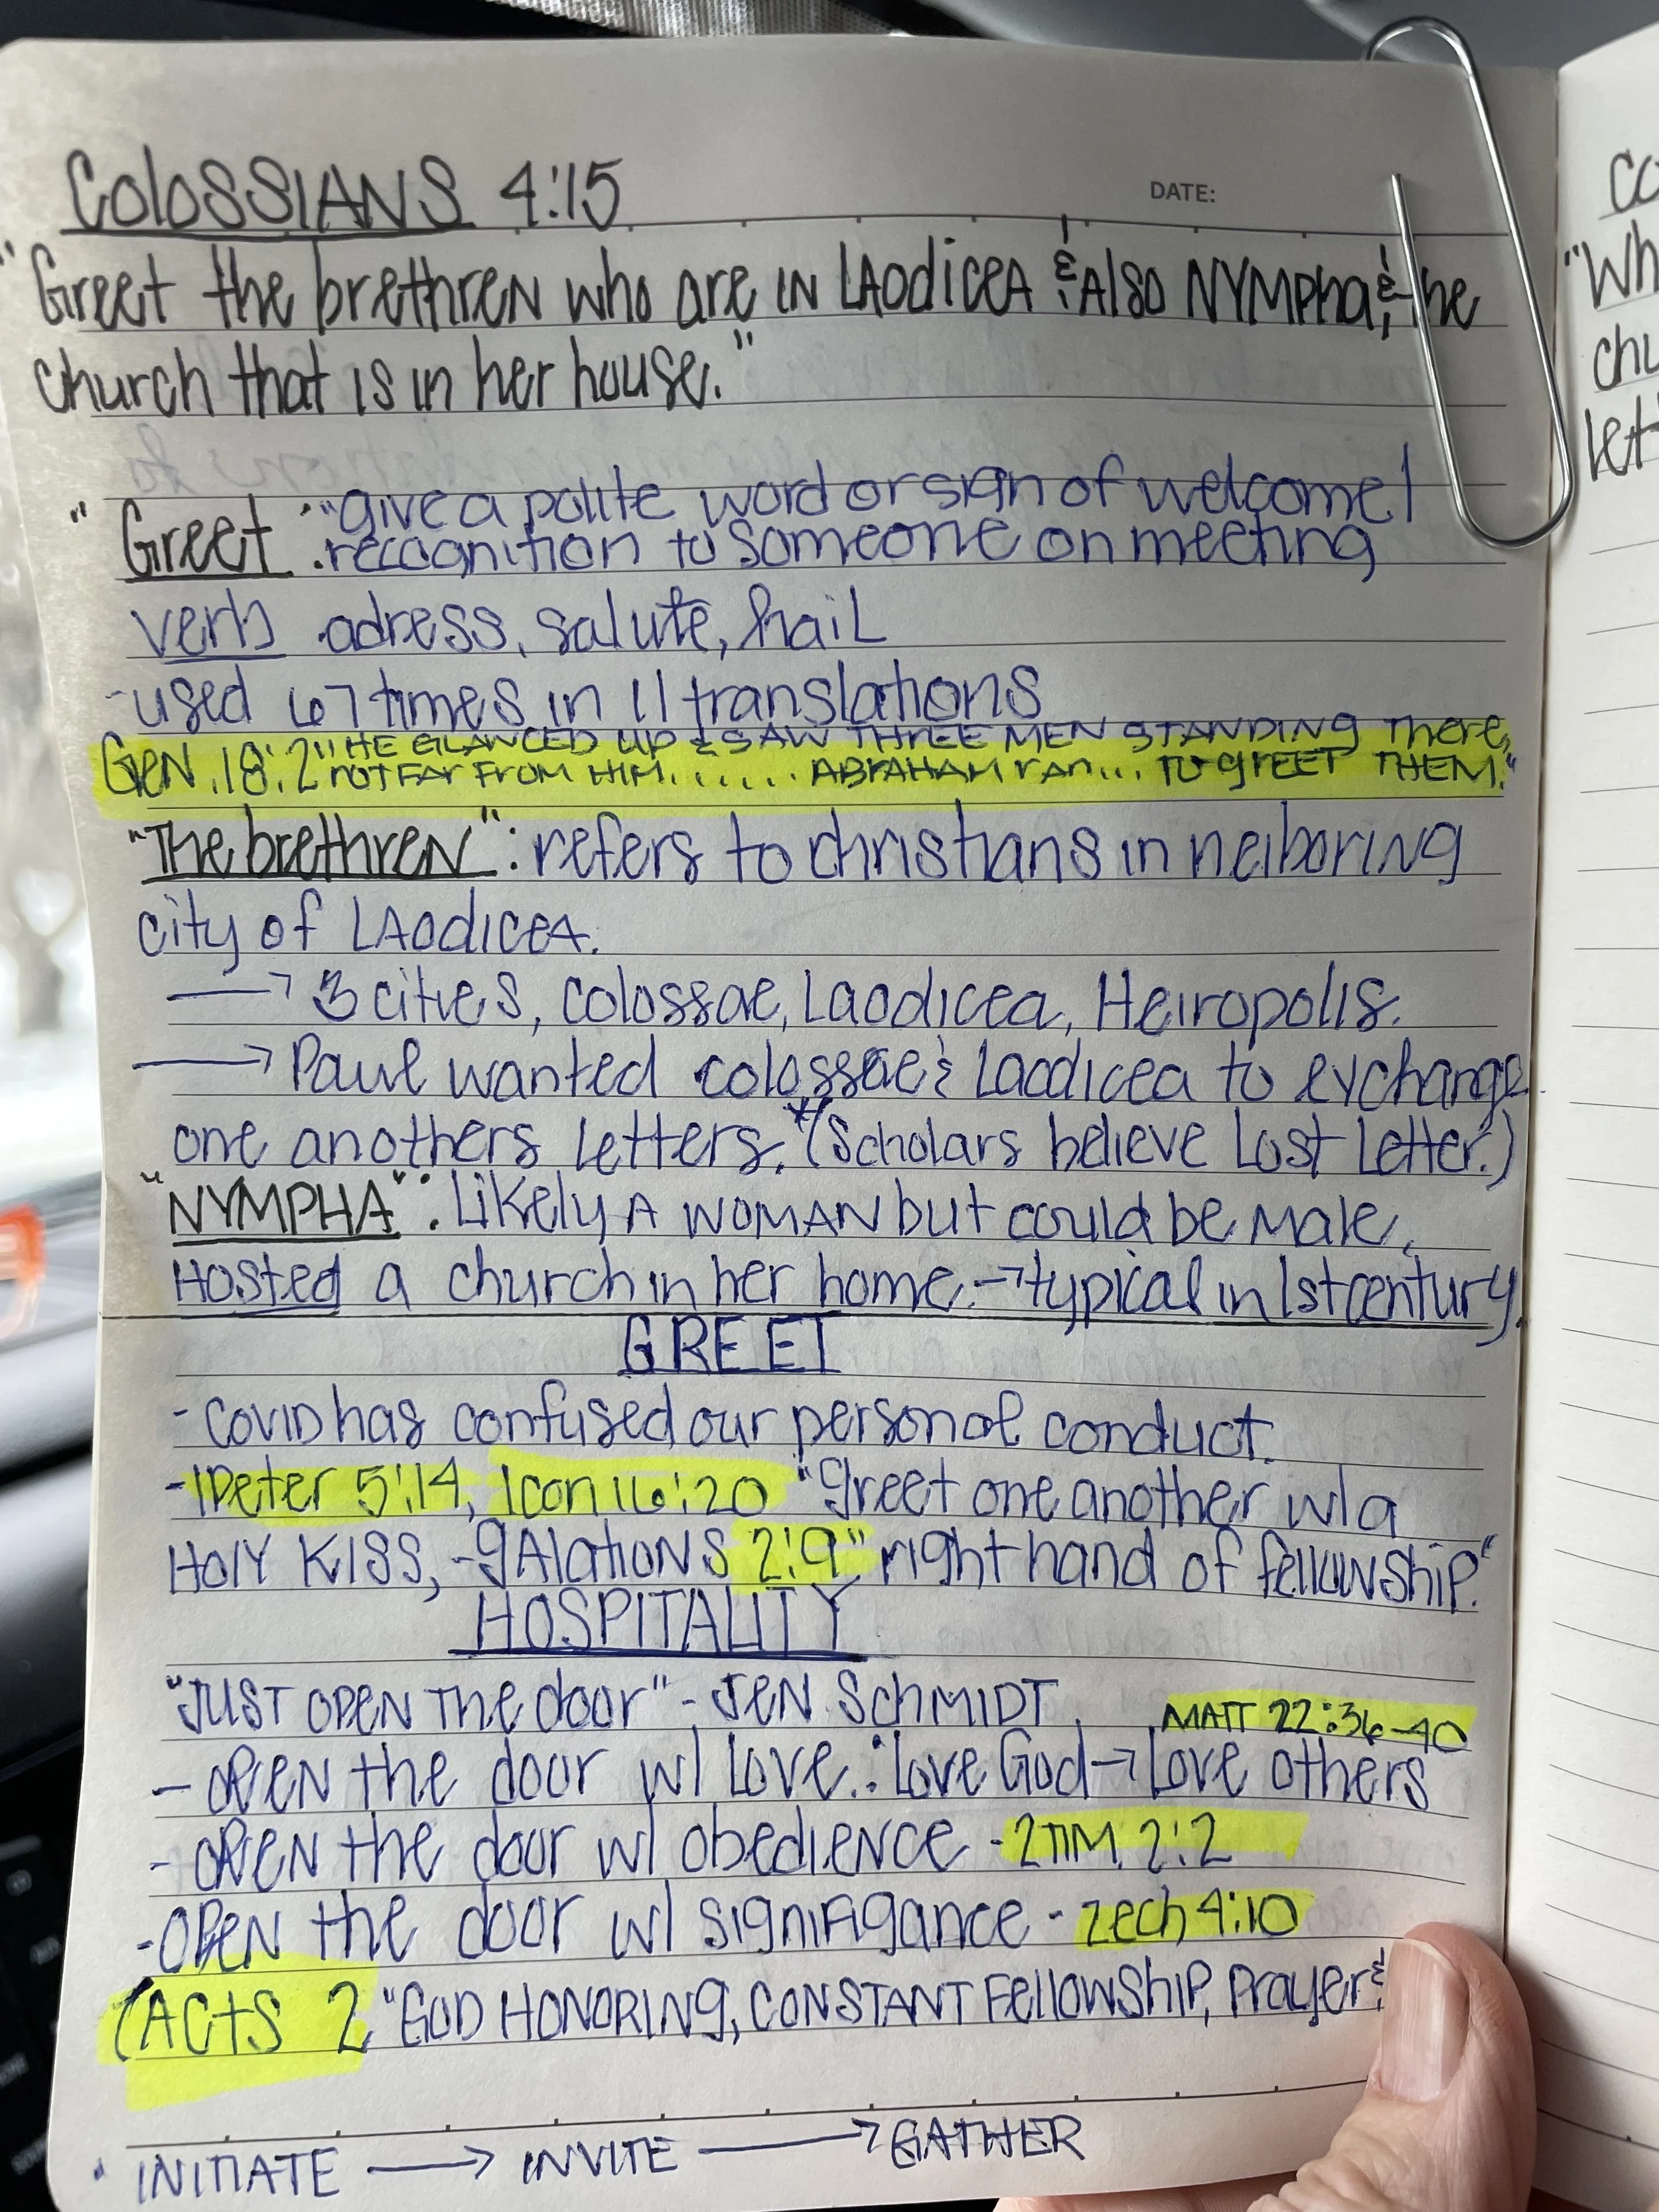 COLOSSIANS 4:15
DATE:
"Greet the brethren who are in LAodiceA & Also NYMpha, & the
church that is in her house."
"Greet": "give a polite word or sign of welcome/
recognition to someone on meeting
verb adress, salute, hail
-used 67 times in 11 translations
Gen. 18:2 "HE GLANCED UP & SAW THREE MEN STANDING There,
not FAR FROM HIM...... ABRAHAM ran... TO greet THEM."
"The brethren": refers to christians in neiboring
city of LAodicea.
→ 3 cities, colossae, Laodicea, Heiropolis.
→ Paul wanted colossae & Laodicea to exchange
one anothers letters. *(Scholars believe Lost Letter.)
"NYMPHA": Likely A WOMAN but could be male,
Hosted a church in her home. → typical in 1st century.
GREET
- Covid has confused our personal conduct.
- 1Peter 5:14, 1Corr 16:20 "Greet one another w/ a
HOLY KISS, -gAlations 2:9" right hand of fellowship."
HOSPITALITY
"JUST OPEN The door" - JEN SchMIDT
MATT 22:36-40
- OPEN the door w/ Love.: Love God → Love others
- OPEN the door w/ obedience - 2TIM. 2:2
- OPEN the door w/ signifigance - zech 4:10
(ACtS 2 "GOD HONORING, CONSTANT Fellowship, Prayer &
• INITIATE → INVITE → GATHER
Co
"Wh
chu
let